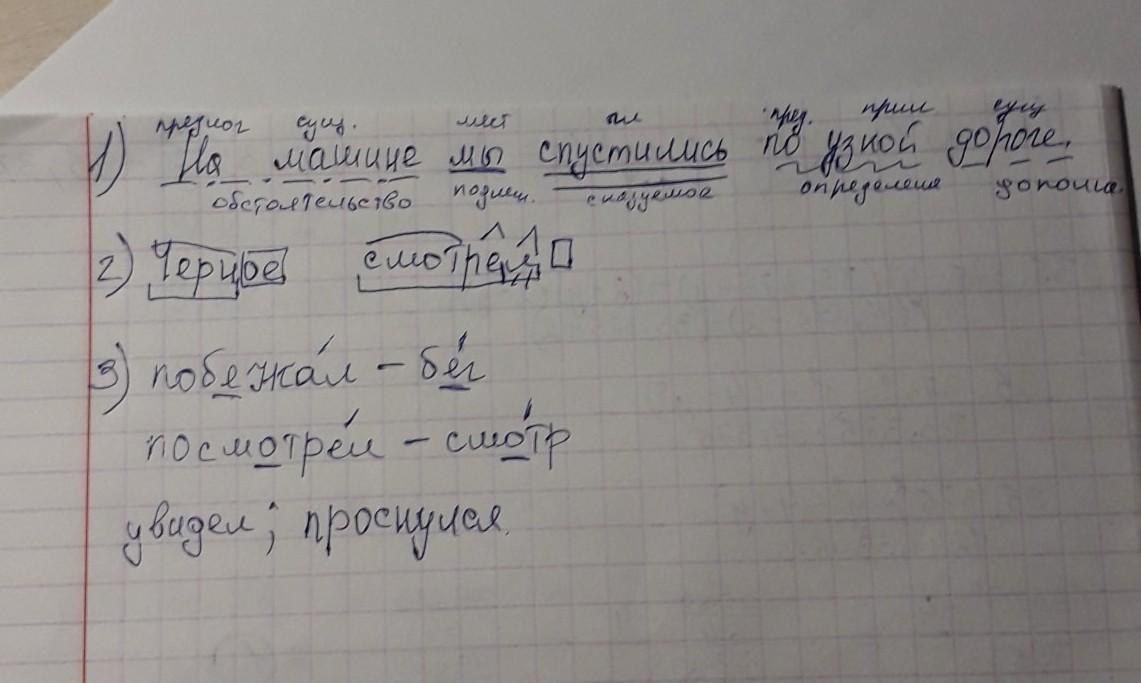 предлог сущ. мест гл пред. прил сущ
1) На машине мы спустились по узкой дороге.
обстоятельство подлеж. сказуемое определение дополн.
2) Черное смотрел
3) побежа́л – бе́г
посмотре́л – смо́тр
увидел; проснулся.